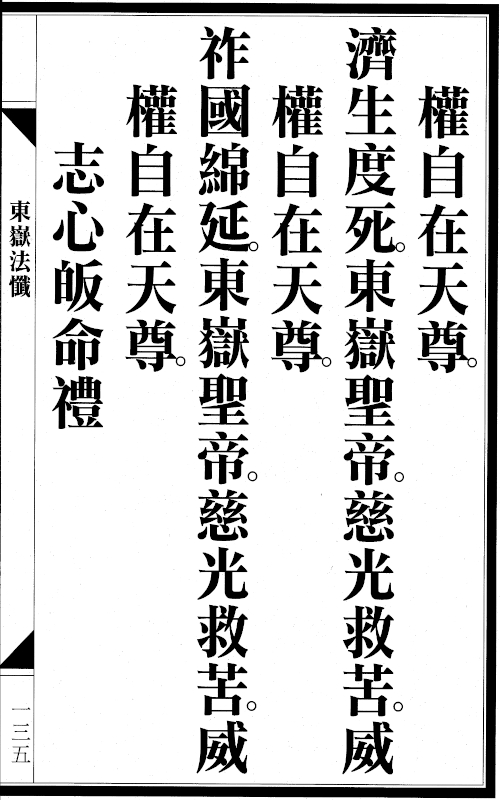 權自在天尊。
濟生度死。東嶽聖帝。慈光救苦。威
權自在天尊。
祚國綿延。東嶽聖帝。慈光救苦。威
權自在天尊。
志心皈命禮
東嶽法懺
一三五